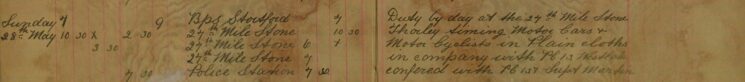 Sunday 7 9 Bps Stortford 7 Duty by day at the 27th Mile Stone
28th May 10 30 x 2 30 27th Mile Stone 10 30 Thorley timing Motor Cars &
3 30 27th Mile Stone 6 + Motor Cyclists in Plain cloths
27th Mile Stone 7 in company with PC 13
7 30 Police Station 7 30 confered with PC 137 Supt Martin